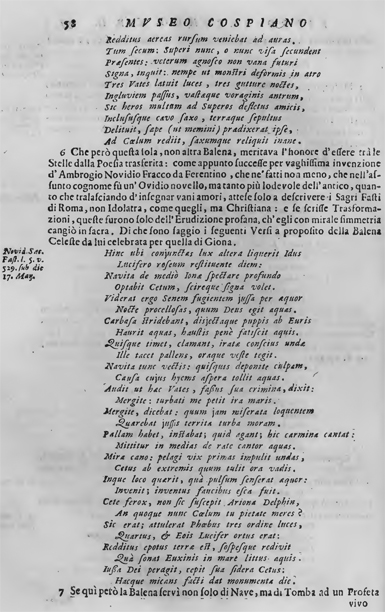 58 MVSEO COSPIANO
Redditus aereas rursum veniebat ad auras.
Tum secum: Superi nunc, o nunc visa secundent
Præsentes: veterum agnosco non vana futuri
Signa, inquit: nempe ut monstri deformis in atro
Tres Vates latuit luces, tres gutture noctes,
Ingluviem passus, vastæque voraginis antrum,
Sic heros multùm ad Superos defletus amicis,
Inclususque cavo saxo, terraque sepultus
Delituit, sæpe (ut memini) prædixerat ipse,
Ad Cœlum rediit, saxumque reliquit inane.
6 Che però questa sola, non altra Balena, meritava l'honore d'essere trà le
Stelle dalla Poesia trasferita: come appunto successe per vaghissima invenzione
d'Ambrogio Novidio Fracco da Ferentino, che ne' fatti non meno, che nell'as-
sunto cognome fù un' Ovidio novello, ma tanto più lodevole dell'antico, quan-
to che tralasciando d'insegnar vani amori, attese solo a descrivere i Sagri Fasti
di Roma, non Idolatra, come quegli, ma Christiana: e se scrisse Trasforma-
zioni, queste furono solo dell'Erudizione profana, ch'egli con mirabile simmetria
cangiò in sacra. Di che sono saggio i seguenti Versi a proposito della Balena
Celeste da lui celebrata per quella di Giona.
Novid. Sac.
Fast. l. 5. v.
529. sub die
17. May.
Hinc ubi conjunctas lux altera liquerit Idus
Lucifero roseum restituente diem:
Navita de mediò Iona spectare profundo
Optabit Cetum, scireque signa volet.
Viderat ergo Senem fugientem jussa per æquor
Nocte procellosas, quum Deus egit aquas.
Carbasa stridebant, disjectaque puppis ab Euris
Haurit aquas, haustis penè fatiscit aquis.
Quisque timet, clamant, irata conscius undæ
Ille tacet pallens, oraque veste tegit.
Navita tunc vectis: quisquis deponite culpam,
Causa cujus hyems aspera tollit aquas.
Audit ut hæc Vates, fassus sua crimina, dixit:
Mergite: turbati me petit ira maris.
Mergite, dicebat: quum jam miserata loquentem
Quærebat jussis territa turba moram.
Pallam habet, instabat; quid agant; hic carmina cantat:
Mittitur in medias de rate cantor aquas.
Mira cano: pelagi vix primas impulit undas,
Cetus ab extremis quum tulit ora vadis.
Inque loco quærit, quà pulsum senserat æquor:
Invenit; inventus faucibus esca fuit.
Cete ferox, non sic suscepit Ariona Delphin,
An quoque nunc Cœlum tu pietate meres?
Sic erat; attulerat Phœbus tres ordine luces,
Quartus, & Eois Lucifer ortus erat:
Redditus epotus terræ est, sospesque redivit
Quà sonat Euxinis in mare littus aquis.
Iussa Dei peragit, cepit sua sidera Cetus;
Hacque micans facti dat monumenta die.
7 Se quì però la Balena servì non solo di Nave, ma di Tomba ad un Profeta
vivo